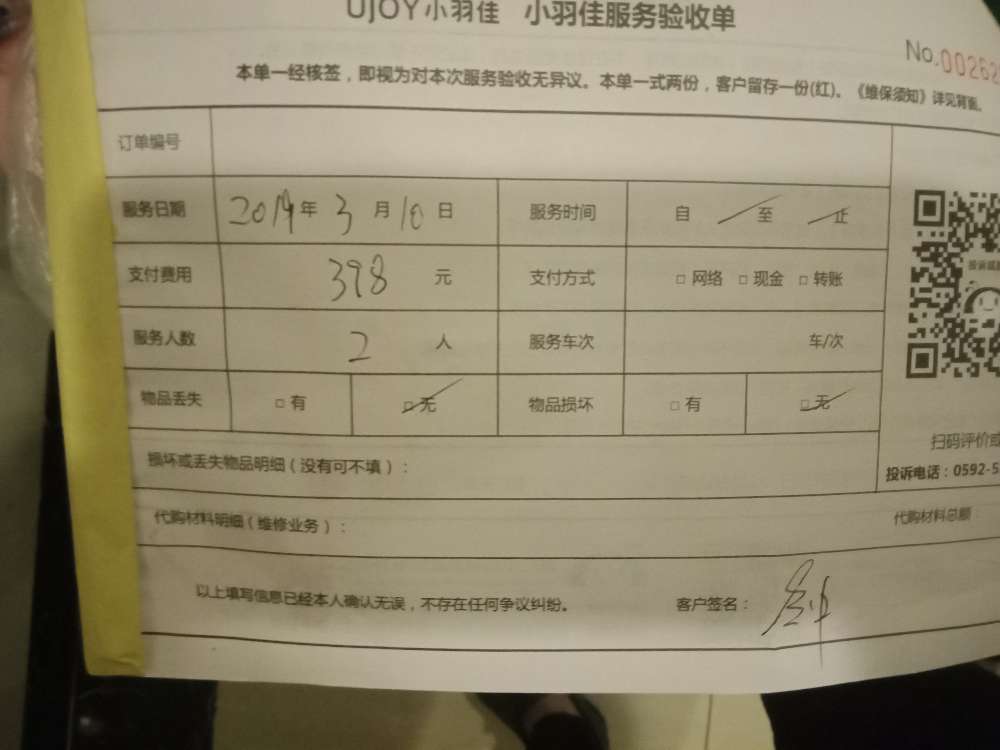 UJOY小羽佳 小羽佳服务验收单
No.00262
本单一经核签，即视为对本次服务验收无异议。本单一式两份，客户留存一份(红)。《维保须知》详见背面。
订单编号
服务日期 2019年 3月 10日 服务时间 自 至 止
支付费用 398 元 支付方式 □ 网络 □ 现金 □ 转账
服务人数 2 人 服务车次 车/次
物品丢失 □ 有 □ 无 物品损坏 □ 有 □ 无
扫码评价或
损坏或丢失物品明细（没有可不填）：
投诉电话：0592-5
代购材料明细（维修业务）： 代购材料总额
以上填写信息已经本人确认无误，不存在任何争议纠纷。 客户签名：